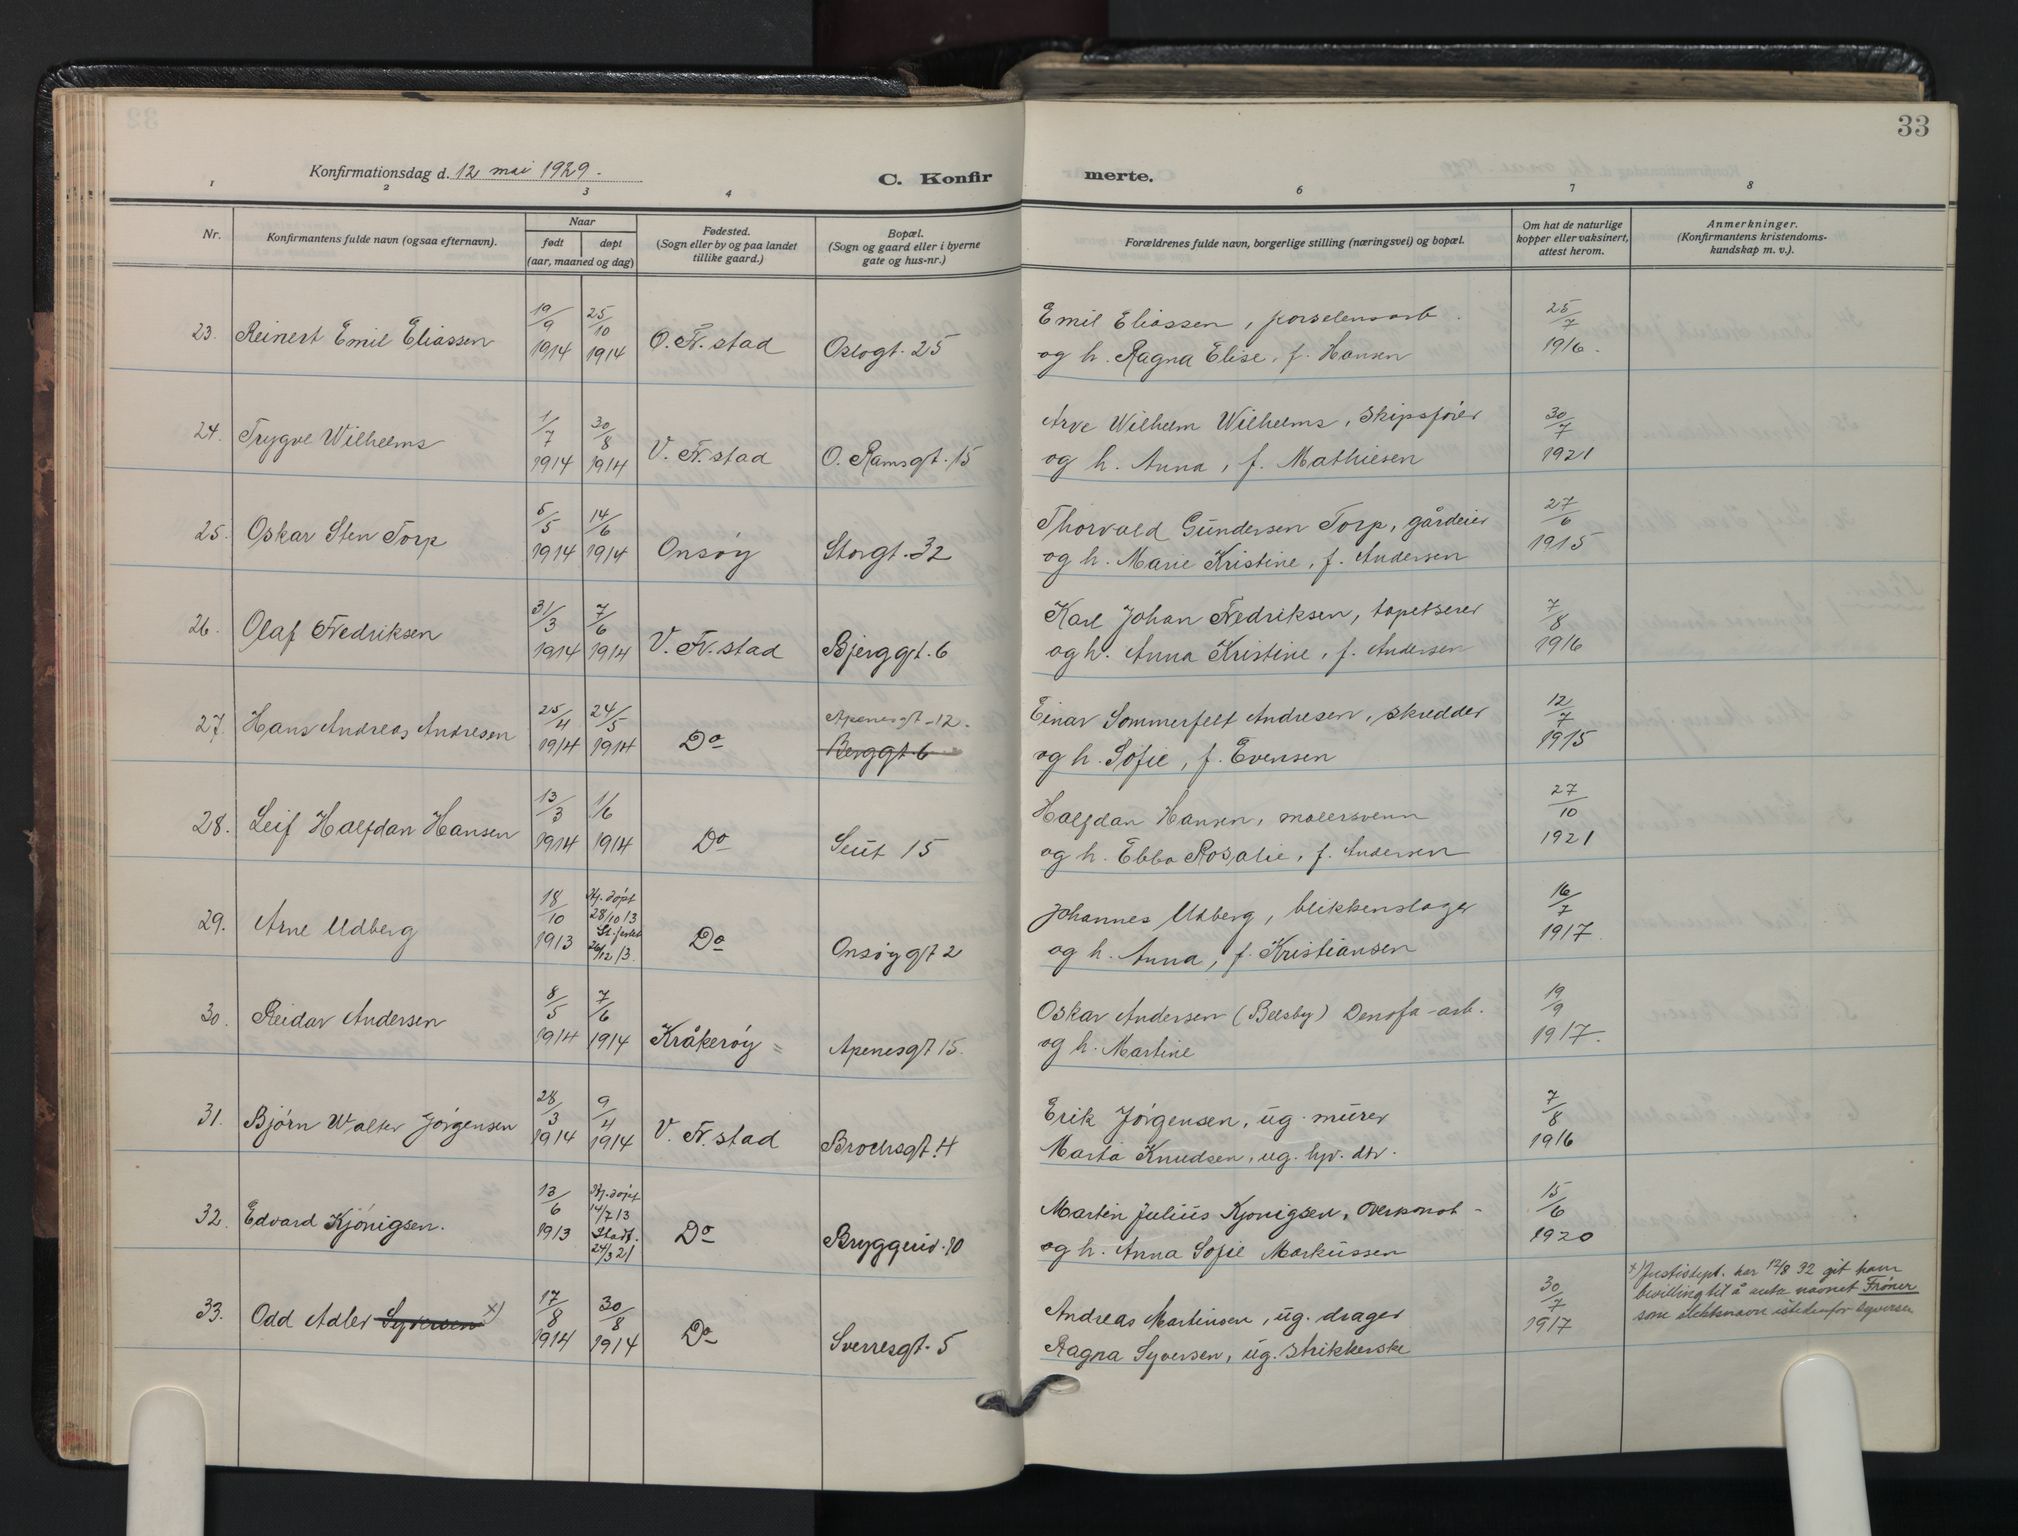 33
Konfirmationsdag d. 12 mai 1929.
C. Konfir merte.
1 2 3 4 5 6 7 8
Nr.
Konfirmantens fulde navn (ogsaa efternavn).
Naar
født døpt
(aar, maaned og dag)
Fødested.
(Sogn eller by og paa landet
tillike gaard.)
Bopæl.
(Sogn og gaard eller i byerne
gate og hus-nr.)
Forældrenes fulde navn, borgerlige stilling (næringsvei) og bopæl.
Om hat de naturlige
kopper eller vaksinert,
attest herom.
Anmerkninger.
(Konfirmantens kristendoms-
kundskap m. v.).
23. Reinert Emil Eliassen 19/9 1914 25/10 1914 O. Fr. stad Oslogt. 25
Emil Eliassen, porselensarb.
og h. Ragna Elise, f. Hansen
25/7 1916.
24. Trygve Wilhelms 1/7 1914 30/8 1914 V. Fr. stad O. Ramsgt. 15
Arve Wilhelm Wilhelms, skipsfører
og h. Anna, f. Mathiesen
30/7 1921
25. Oskar Sten Torp 5/5 1914 14/6 1914 Onsøy Storgt. 32
Thorvald Gundersen Torp, gårdeier
og h. Marie Kristine, f. Andersen
27/6 1915
26. Olaf Fredriksen 31/3 1914 7/6 1914 V. Fr. stad Bjerggt. 6
Karl Johan Fredriksen, tapetserer
og h. Anna Kristine, f. Andersen
7/8 1916
27. Hans Andreas Andresen 25/4 1914 24/5 1914 Do Apenesgt. 12.
Berggt. 6
Einar Sommerfelt Andresen, skredder
og h. Sofie, f. Evensen
12/7 1915
28. Leif Halfdan Hansen 13/3 1914 1/6 1914 Do Seut 15
Halfdan Hansen, malersvenn
og h. Ebba Rosalie, f. Andersen
27/10 1921
29. Arne Udberg 18/10 1913 Hj. døpt 28/10 13 26/12 13. Do Onsøygt 2
Johannes Udberg, blikkenslager
og h. Anna, f. Kristiansen
16/7 1917.
30. Reidar Andersen 8/5 1914 7/6 1914 Kråkerøy Apenesgt 15.
Oskar Andersen (Belsby) Denofa-arb.
og h. Martine
19/9 1917.
31. Bjørn Walter Jørgensen 28/3 1914 9/4 1914 V. Fr. stad Brochsgt. 4
Erik Jørgensen, ug. murer
Marta Knudsen, ug. hjv. dtr.
7/8 1916
32. Edvard Kjønigsen. 13/6 1913 Hj. døpt 14/7 13 Stadf. 24/3 21 Do Bryggeriv. 10
Martin Julius Kjønigsen,
og h. Anna Sofie Markussen
15/6 1920
33. Odd Adler Syversen x) 17/8 1914 30/8 1914 Do Sverresgt. 5
Andreas Martinsen, ug. drager
Ragna Syversen, ug. strikkerske
30/7 1917
x) Justisdept. har 12/8 32 git ham
bevilling til å anta navnet Frøner
som slektsnavn istedenfor Syversen